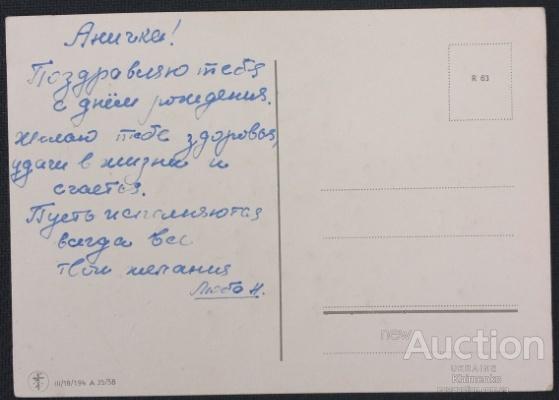 Аничка!
Поздравляю тебя
с днём рождения.
Желаю тебе здоровья,
удачи в жизни и
счастья.
Пусть исполняются
всегда все
твои желания
Люба Н.
R 63
III/18/194 A 35/58
new
Auction
UKRAINE
Khimenko